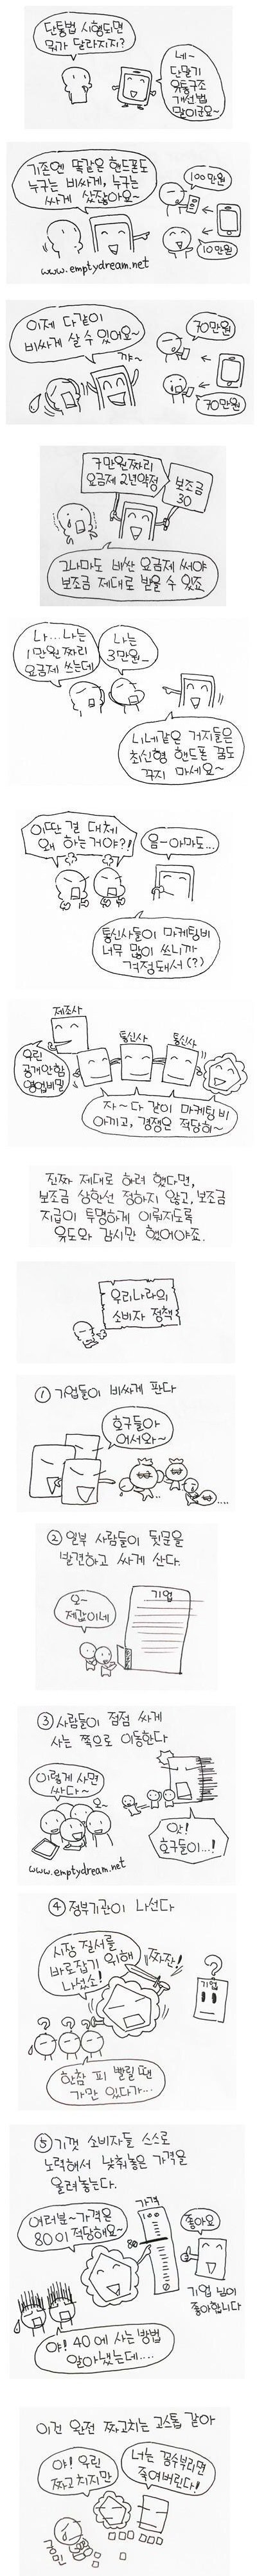 단통법 시행되면
뭐가 달라지지?
네~
단말기
유통구조
개선법
말이군요~
기존엔 똑같은 핸드폰도
누구는 비싸게, 누구는
싸게 샀잖아요~
100만원
10만원
www.emptydream.net
이제 다같이
비싸게 살 수 있어요~
꺄~
70만원
70만원
7만원짜리
요금제 2년약정
보조금
30
그나마도 비싼 요금제 써야
보조금 제대로 받을 수 있죠
나...나는
1만원짜리
요금제 쓰는데
나는
3만원_
니네같은 거지들은
최신형 핸드폰 꿈도
꾸지 마세요~
이딴 걸 대체
왜 하는거야?!
음-아마도...
통신사들이 마케팅비
너무 많이 쓰니까
걱정돼서(?)
제조사
통신사
통신사
우린
공개안함
영업비밀
자~다 같이 마케팅비
아끼고, 경쟁은 적당히~
진짜 제대로 하려 했다면,
보조금 상한선 정하지 않고, 보조금
지급이 투명하게 이뤄지도록
유도와 감시만 했어야죠.
우리나라의
소비자 정책
① 기업들이 비싸게 판다
호구들아
어서와~
② 일부 사람들이 뒷문을
발견하고 싸게 산다.
오~
제값이네
기업
③ 사람들이 점점 싸게
사는 쪽으로 이동한다
이렇게 사면
싸다~
오~
앗!
호구들이...!
www.emptydream.net
④ 정부기관이 나선다
시장 질서를
바로잡기 위해
나섰소!
짜잔!
?
기업
? ? ?
한참 피 빨릴 땐
가만 있다가...
⑤ 기껏 소비자들 스스로
노력해서 낮춰놓은 가격을
올려놓는다.
여러분~가격은
80이 적당해요~
가격
100
80
0
좋아요
기업 님이
좋아합니다
야! 40에 사는 방법
알아냈는데....
이건 완전 짜고치는 고스톱 같아
야! 우린
짜고 치지만
너는 꼼수부리면
죽여버린다!
국민